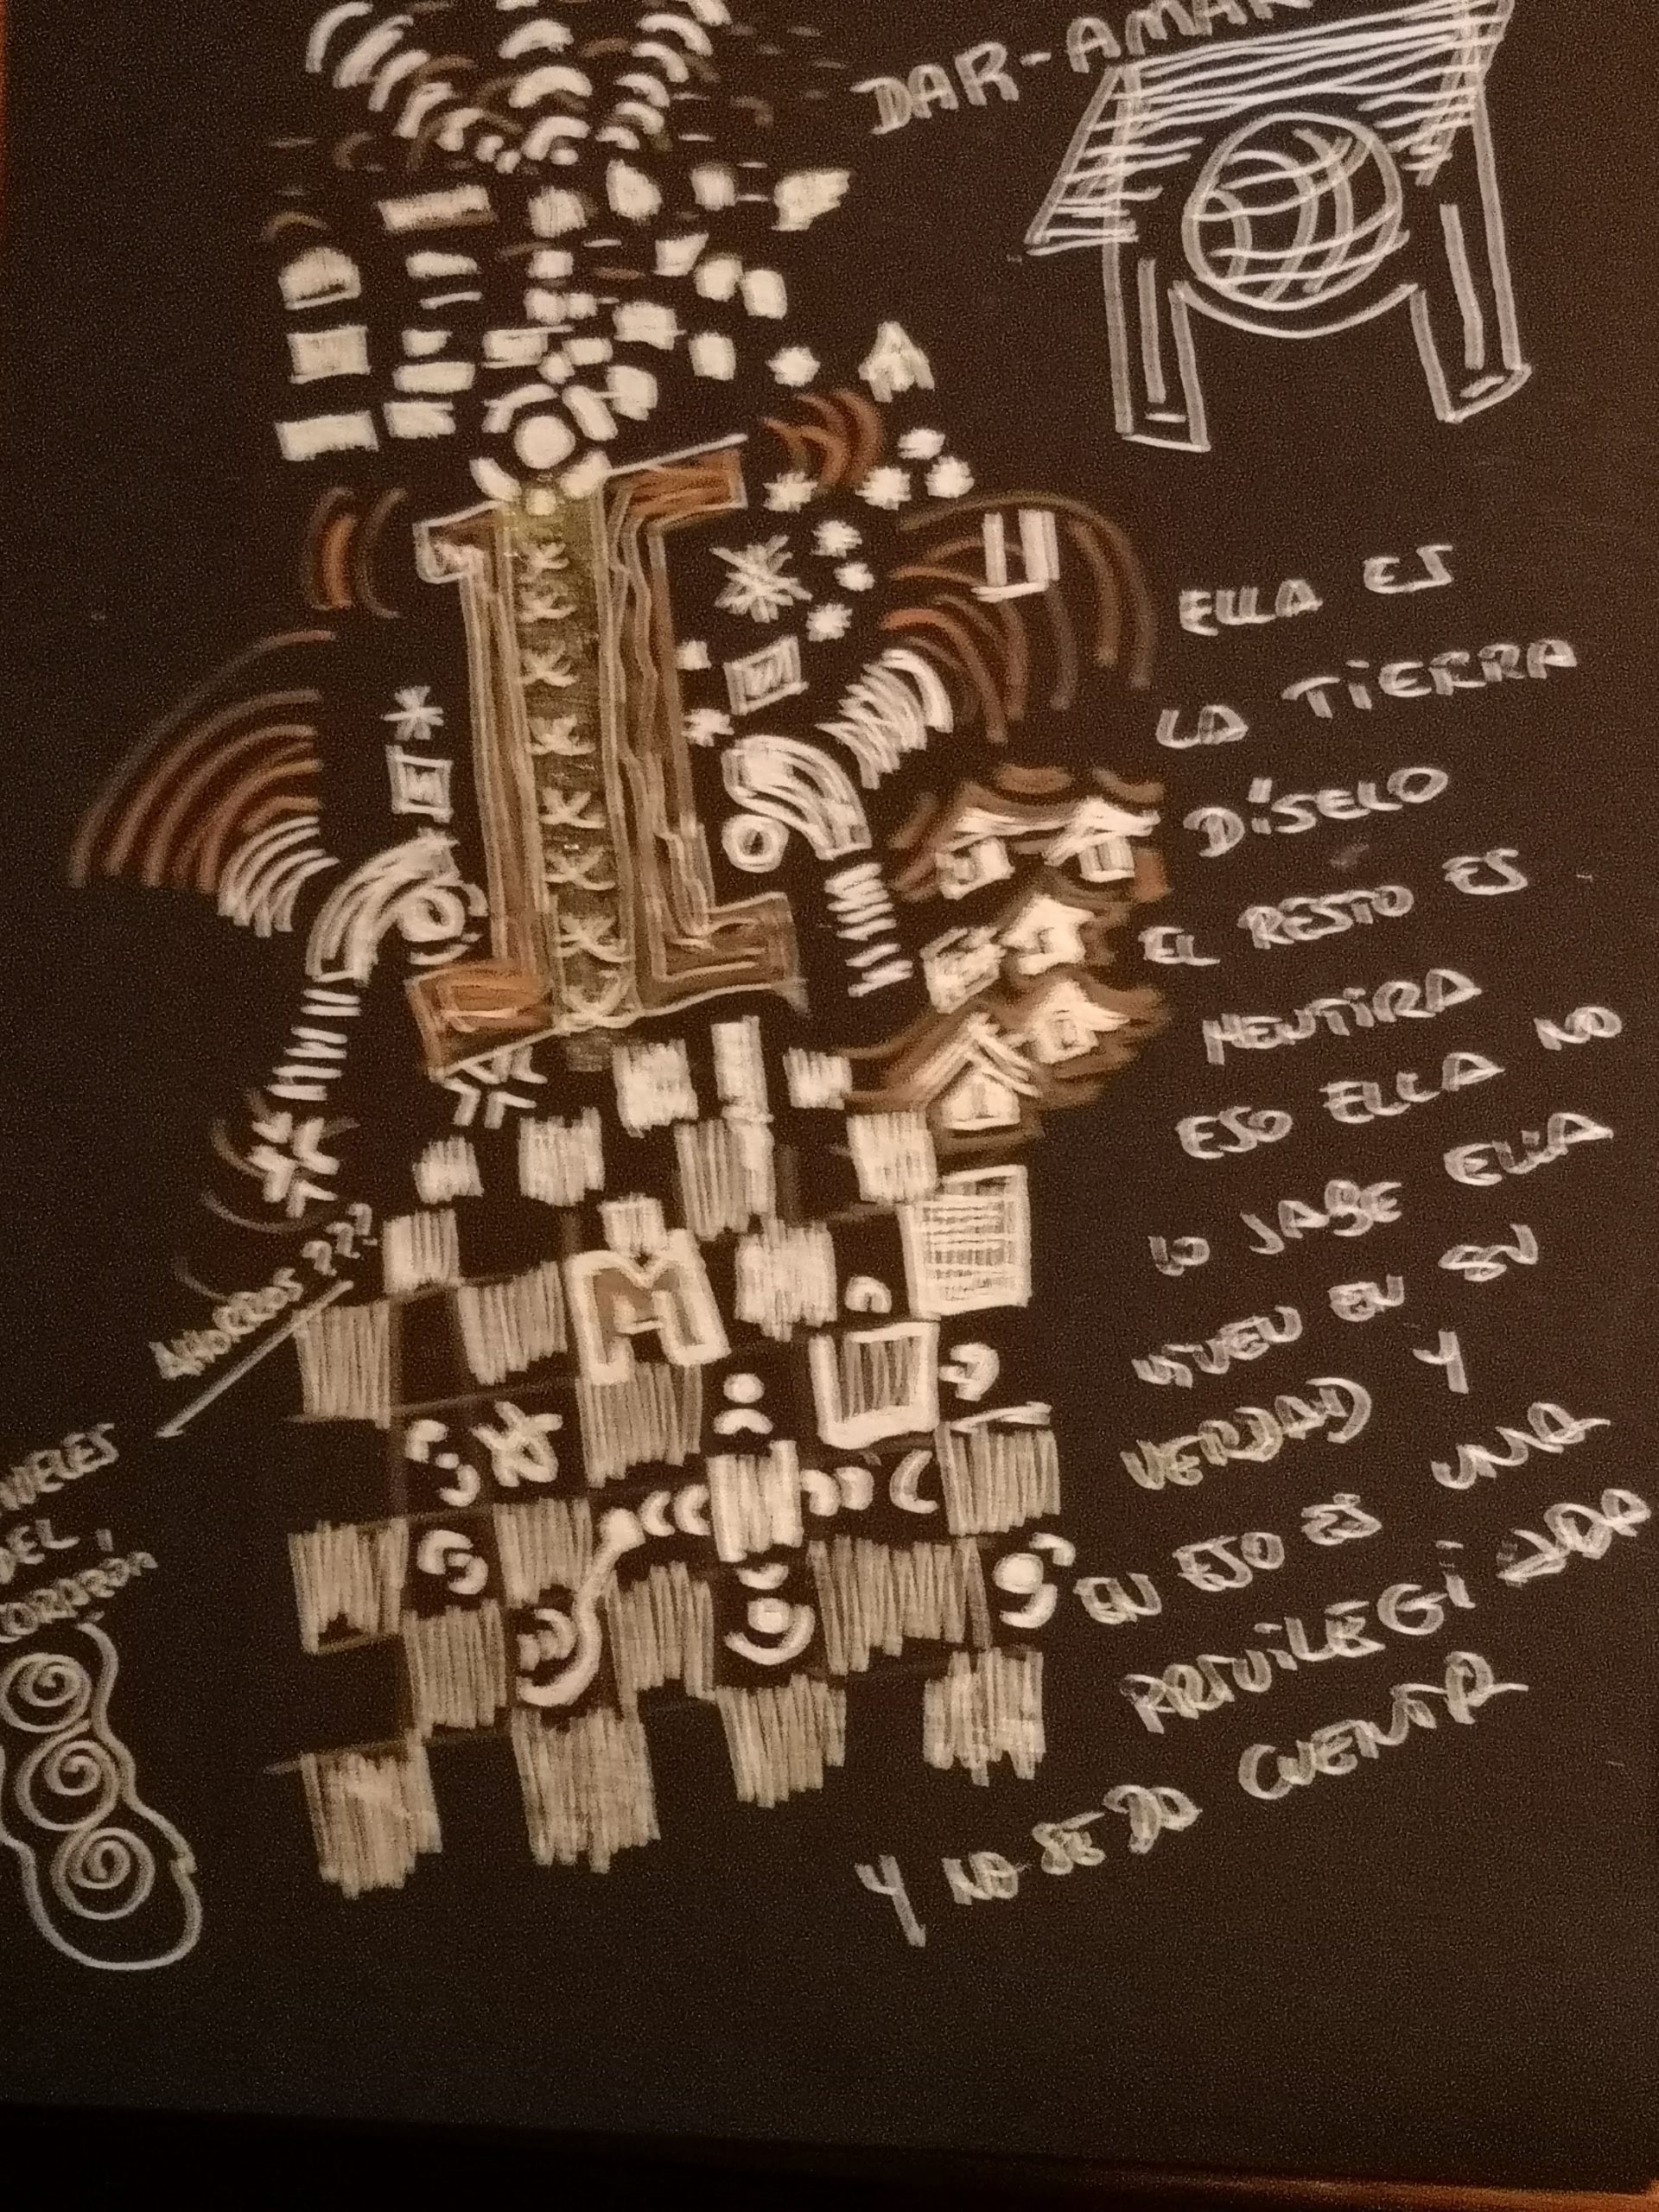 DAR-AMAR
ELLA ES
LA TIERRA
DÍSELO
EL RESTO ES
MENTIRA
ESO ELLA NO
LO SABE ELLA
EN SU
VERDAD Y
EN ESO ES UNA
PRIVILEGIADA
Y NO SE DA CUENTA
M
DEL